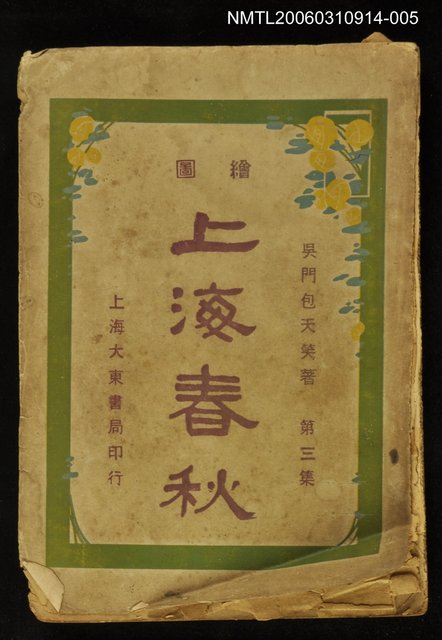 NMTL20060310914-005
繪圖
吳門包天笑著 第三集
上海春秋
上海大東書局印行